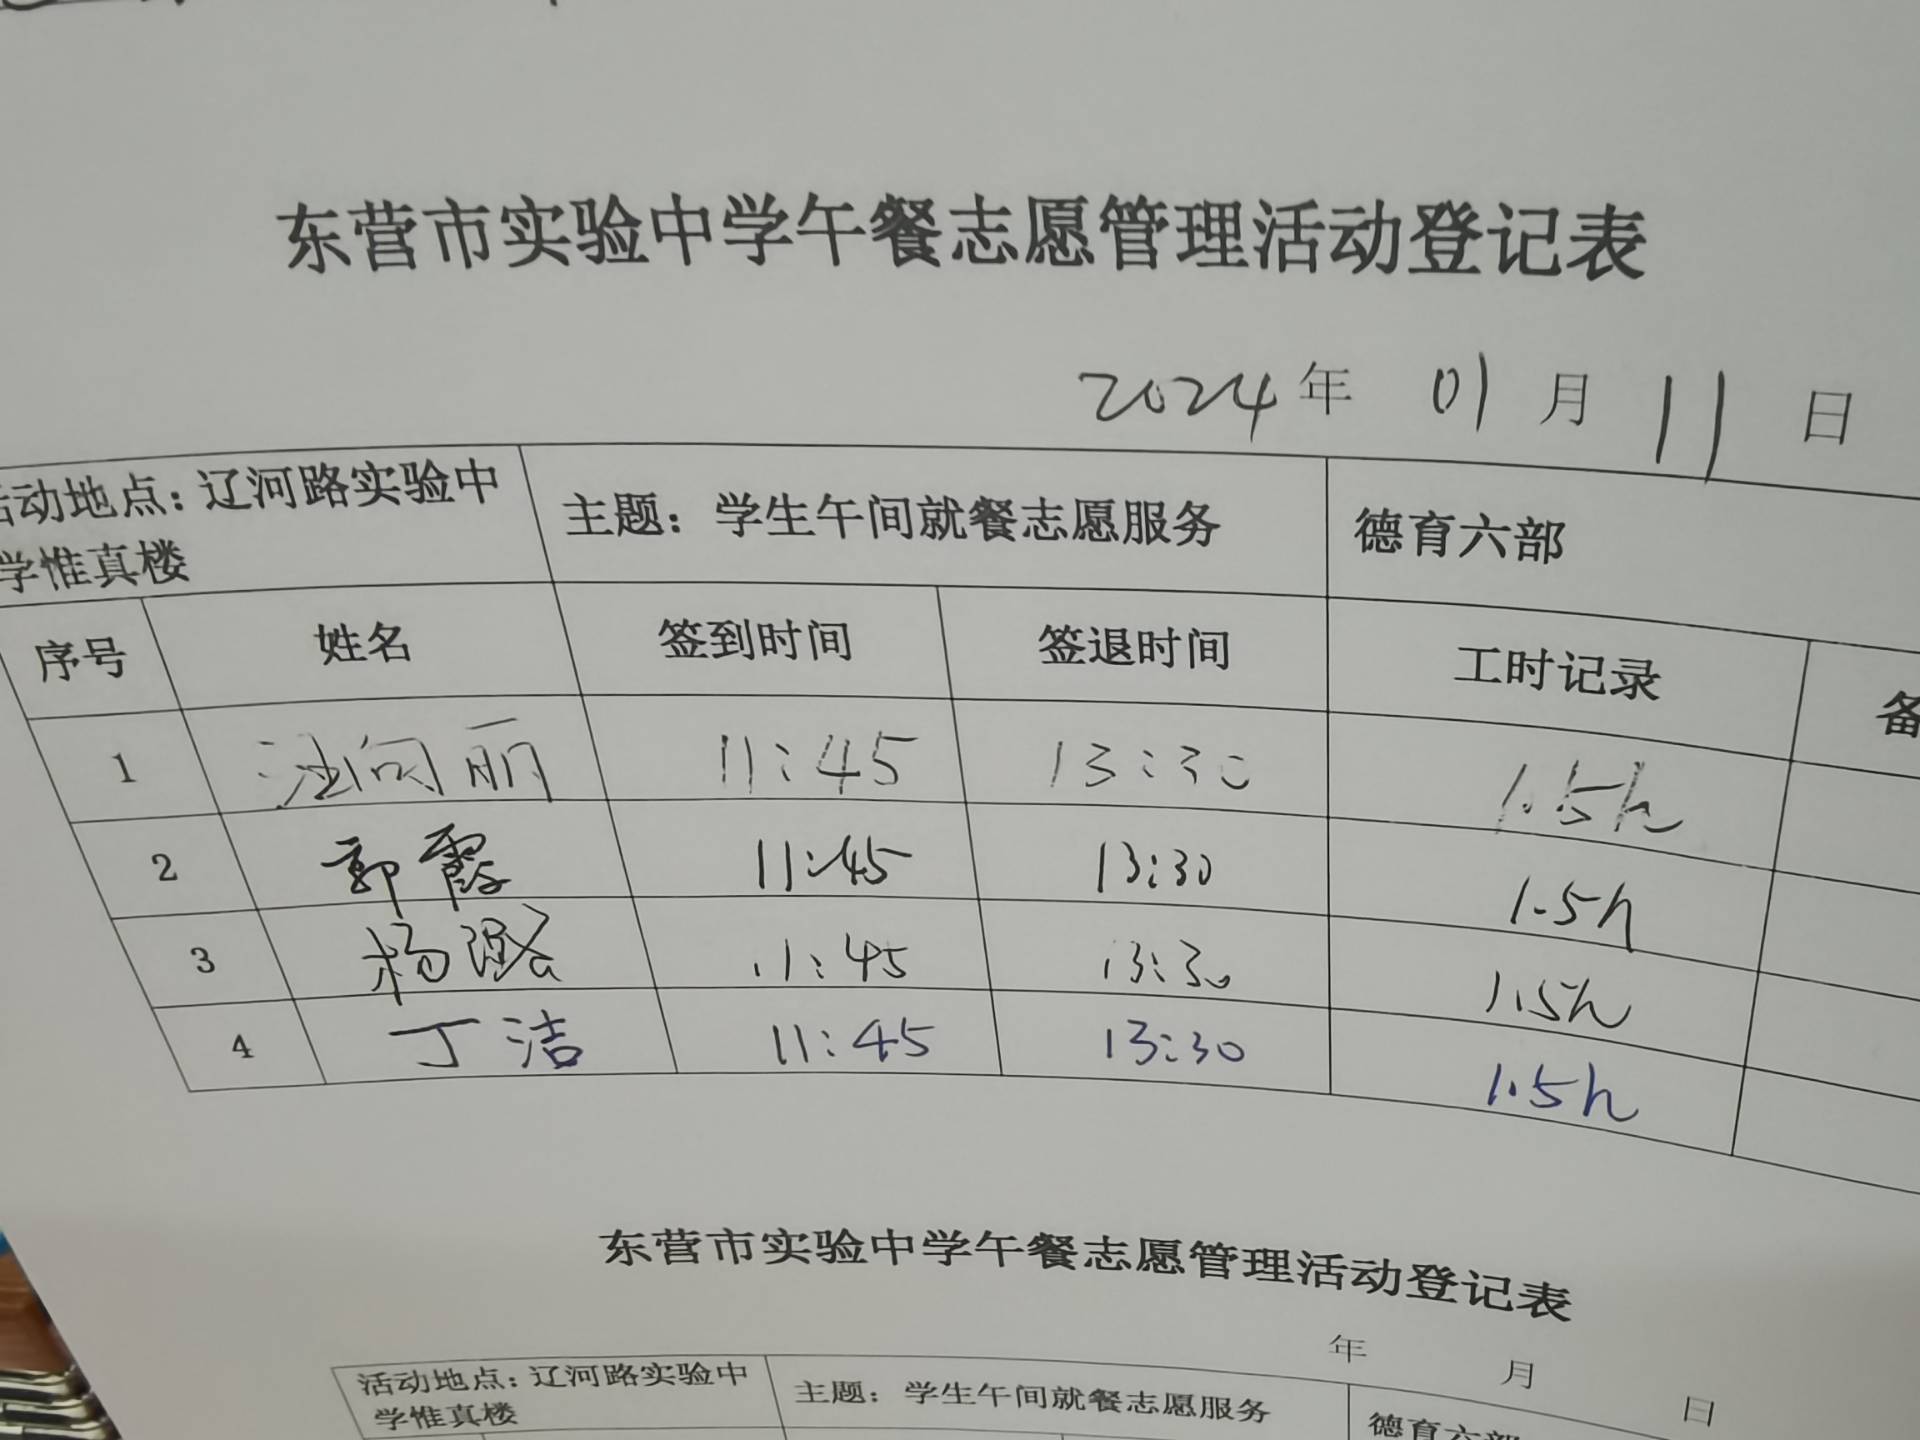 东营市实验中学午餐志愿管理活动登记表
2024年 01月 11日
活动地点：辽河路实验中 主题：学生午间就餐志愿服务 德育六部
学惟真楼
序号 姓名 签到时间 签退时间 工时记录 备
1 丽 11:45 13:30 1.5h
2 郭霞 11:45 13:30 1.5h
3 杨璐 11:45 13:30 1.5h
4 丁洁 11:45 13:30 1.5h
东营市实验中学午餐志愿管理活动登记表
年 月 日
活动地点：辽河路实验中 主题：学生午间就餐志愿服务 德育六部
学惟真楼